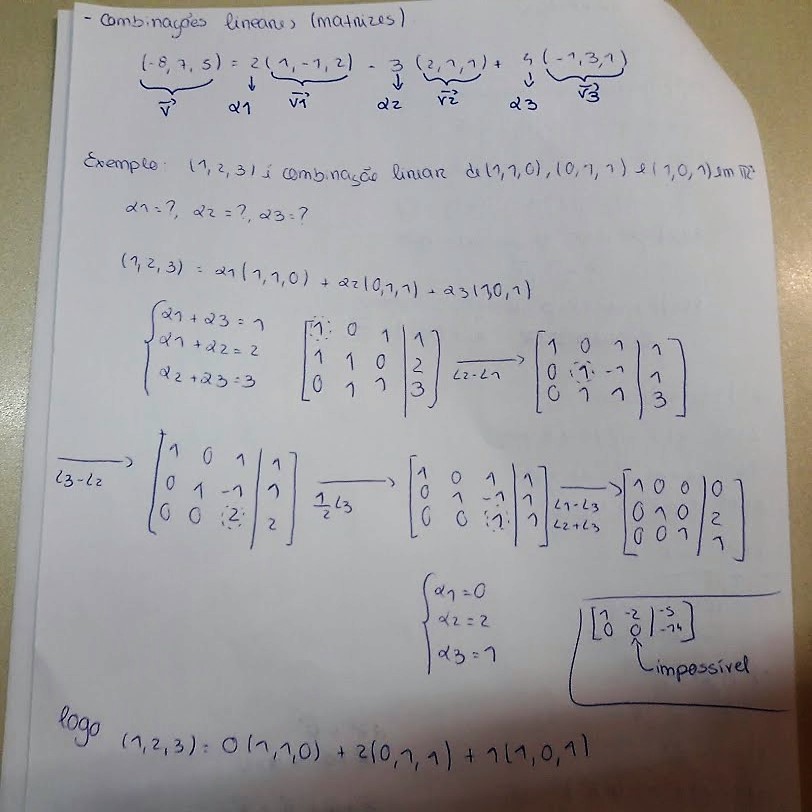 - Combinações lineares (matrizes)
(-8, 7, 5) = 2(1, -1, 2) - 3(2, 1, 1) + 4(-1, 3, 1)
v α1 v1 α2 v2 α3 v3
Exemplo: (1, 2, 3) é combinação linear de (1, 1, 0), (0, 1, 1) e (1, 0, 1) em
α1 = ?, α2 = ?, α3 = ?
(1, 2, 3) = α1(1, 1, 0) + α2(0, 1, 1) + α3(1,0, 1)
{ α1 + α3 = 1 [ 1 0 1 | 1 ] [ 1 0 1 | 1 ]
α1 + α2 = 2 [ 1 1 0 | 2 ] → L2-L1 [ 0 1 -1 | 1 ]
α2 + α3 = 3 [ 0 1 1 | 3 ] [ 0 1 1 | 3 ]
→ L3-L2 [ 1 0 1 | 1 ] → 1/2 L3 [ 1 0 1 | 1 ] → L1-L3 [ 1 0 0 | 0 ]
[ 0 1 -1 | 1 ] [ 0 1 -1 | 1 ] L2+L3 [ 0 1 0 | 2 ]
[ 0 0 2 | 2 ] [ 0 0 1 | 1 ] [ 0 0 1 | 1 ]
{ α1 = 0
α2 = 2
α3 = 1
[ 1 -2 | -5 ]
[ 0 0 | -14 ]
impossível
logo (1, 2, 3) = 0(1, 1, 0) + 2(0, 1, 1) + 1(1, 0, 1)